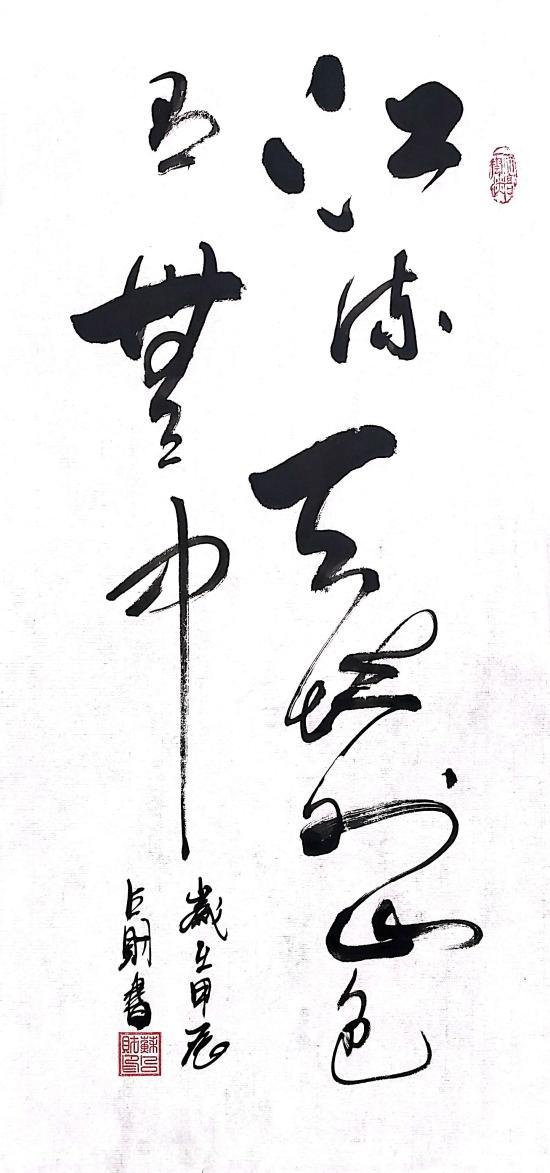 江流天地外山色
有無中
歲在甲辰
占財書